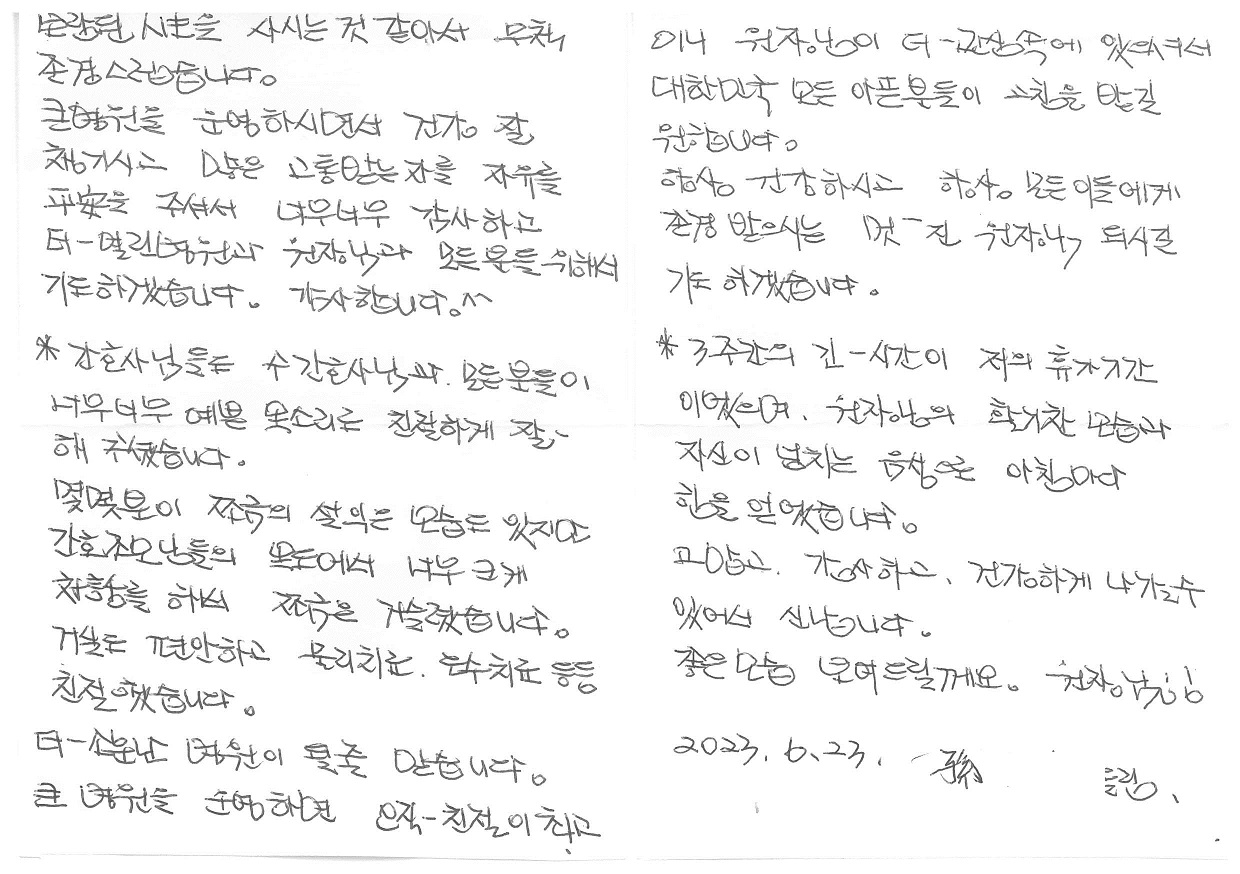 보람된 시간을 사시는 것 같아서 무척
존경스럽습니다。
큰병원을 운영하시면서 건강 잘
챙기시고 많은 고통받는자를 자유를
平安을 주셔서 너무너무 감사하고
더-열린병원과 원장님과 모든분들 위해서
기도하겠습니다。 감사합니다.^^
* 간호사님들도 수간호사님과. 모든분들이
너무너무 예쁜 목소리로 친절하게 잘~
해 주셨습니다。
몇몇분이 쪼금의 설익은 모습도 있지만
간호조모님들의 복도에서 너무 크게
하며 쪼금은 거슬렸습니다。
거실도 편안하고 물리치료. 도수치료 등등
친절했습니다。
더-소문난 병원이 될줄 믿습니다。
큰 병원을 운영하면 오직-친절이 최고
이니 원장님이 더-관심속에 있으셔서
대한민국 모든 아픈분들이 고침을 받길
원합니다。
항상 건강하시고 항상 모든이들에게
존경 받으시는 멋-진 원장님 되시길
기도 하겠습니다。
* 3주간의 긴-시간이 저의 휴가기간
이었으며. 원장님의 활기찬 모습과
자신이 넘치는 음성으로 아침마다
힘을 얻었습니다。
고맙고. 감사하고. 건강하게 나갈수
있어서 신납니다。
좋은모습 보여드릴께요。 원장님!!
2023. 6. 23. 孫 드림.